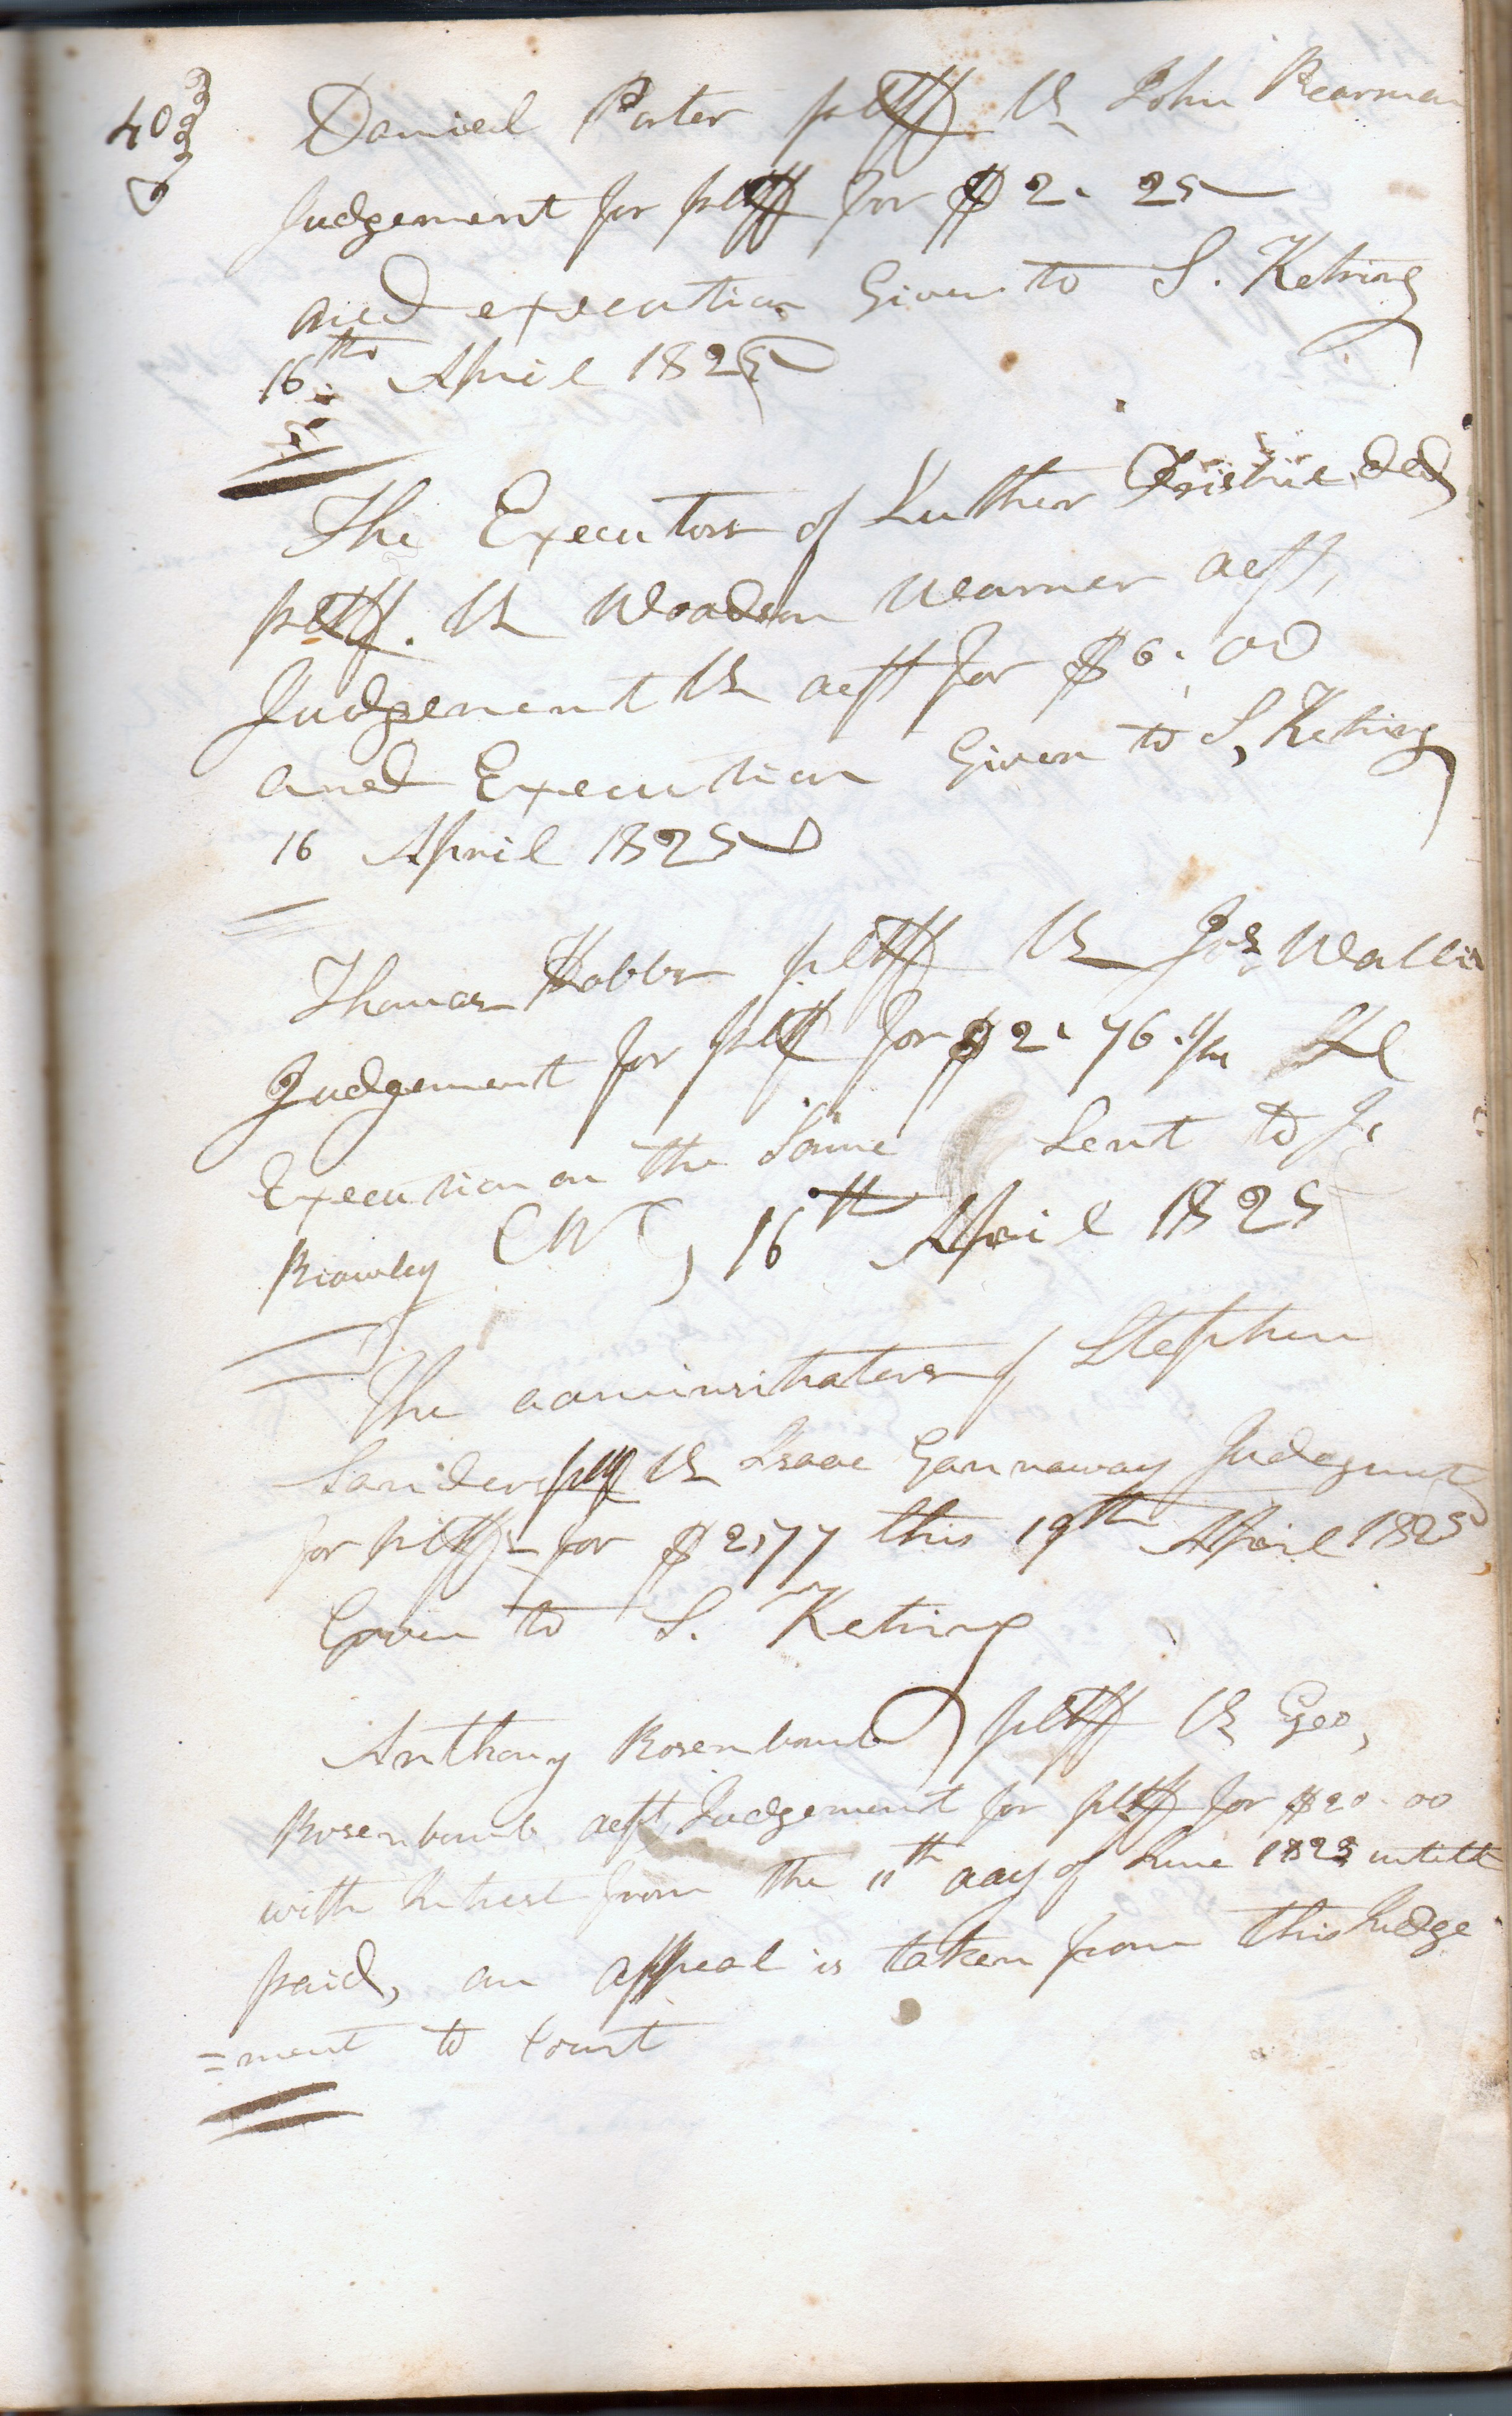 40
Daniel Porter pltff vs John Rearman
Judgement for pltff for $2.25
and execution Given to S. Ketring
16th April 1825
The Executors of Luther Frisbie decd
pltff. vs Woodson Warner deft,
Judgement vs deft for $6.00
and Execution Given to S, Ketring
16 April 1825
Thomas Hobbs pltff vs Jos Wallis
Judgement for pltff for $2.76.1/4
Execution on the Same Sent to J.
Brawley 16th April 1825
The administrators of Stephen
Sanders pltf vs Isaac Gannaway Judgment
for pltff for $2,77 this 19th April 1825
Given to S. Ketring
Anthony Rosenbaumb pltff vs Geo,
Rosenbaumb deft Judgement for pltff for $20.00
with Intrest from the 11th day of June 1823 untill
paid, an appeal is taken from this Judge
=ment to Court